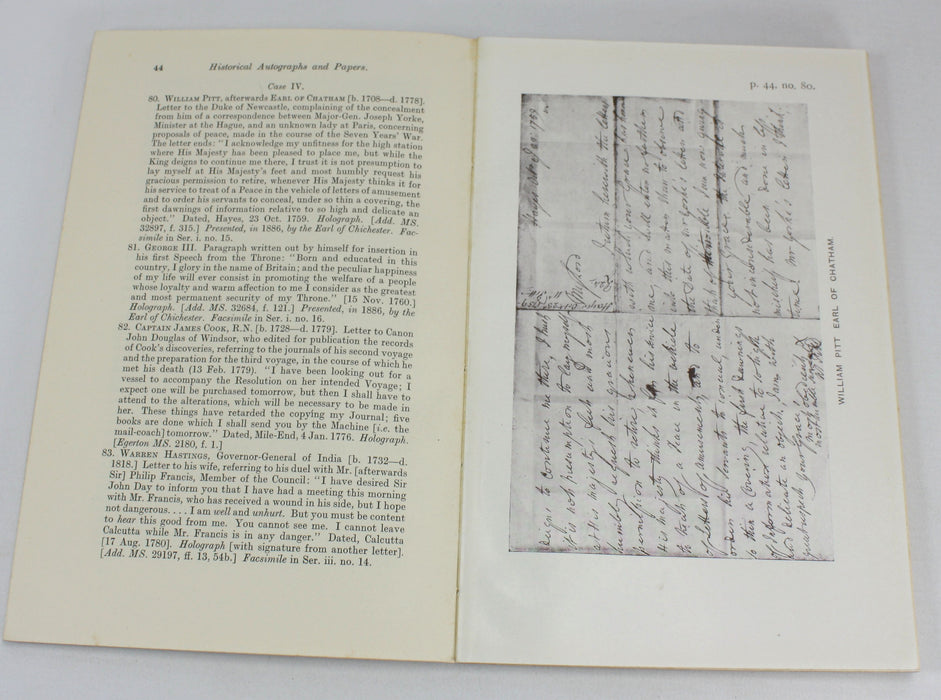 44 Historical Autographs and Papers.
Case IV.
80. WILLIAM PITT, afterwards EARL OF CHATHAM [b. 1708—d. 1778].
Letter to the Duke of Newcastle, complaining of the concealment
from him of a correspondence between Major-Gen. Joseph Yorke,
Minister at the Hague, and an unknown lady at Paris, concerning
proposals of peace, made in the course of the Seven Years' War.
The letter ends: "I acknowledge my unfitness for the high station
where His Majesty has been pleased to place me, but while the
King deigns to continue me there, I trust it is not presumption to
lay myself at His Majesty's feet and most humbly request his
gracious permission to retire, whenever His Majesty thinks it for
his service to treat of a Peace in the vehicle of letters of amusement
and to order his servants to conceal, under so thin a covering, the
first dawnings of information relative to so high and delicate an
object." Dated, Hayes, 23 Oct. 1759. Holograph. [Add. MS.
32897, f. 315.] Presented, in 1886, by the Earl of Chichester. Fac-
simile in Ser. i. no. 15.
81. GEORGE III. Paragraph written out by himself for insertion in
his first Speech from the Throne: "Born and educated in this
country, I glory in the name of Britain; and the peculiar happiness
of my life will ever consist in promoting the welfare of a people
whose loyalty and warm affection to me I consider as the greatest
and most permanent security of my Throne." [15 Nov. 1760.]
Holograph. [Add. MS. 32684, f. 121.] Presented, in 1886, by the
Earl of Chichester. Facsimile in Ser. i. no. 16.
82. CAPTAIN JAMES COOK, R.N. [b. 1728—d. 1779]. Letter to Canon
John Douglas of Windsor, who edited for publication the records
of Cook's discoveries, referring to the journals of his second voyage
and the preparation for the third voyage, in the course of which he
met his death (13 Feb. 1779). "I have been looking out for a
vessel to accompany the Resolution on her intended Voyage; I
expect one will be purchased tomorrow, but then I shall have to
attend to the alterations, which will be necessary to be made in
her. These things have retarded the copying my Journal; five
books are done which I shall send you by the Machine [i.e. the
mail-coach] tomorrow." Dated, Mile-End, 4 Jan. 1776. Holograph.
[Egerton MS. 2180, f. 1.]
83. WARREN HASTINGS, Governor-General of India [b. 1732—d.
1818.] Letter to his wife, referring to his duel with Mr. [afterwards
Sir] Philip Francis, Member of the Council: "I have desired Sir
John Day to inform you that I have had a meeting this morning
with Mr. Francis, who has received a wound in his side, but I hope
not dangerous. . . . I am well and unhurt. But you must be content
to hear this good from me. You cannot see me. I cannot leave
Calcutta while Mr. Francis is in any danger." Dated, Calcutta
[17 Aug. 1780]. Holograph [with signature from another letter].
[Add. MS. 29197, ff. 13, 54b.] Facsimile in Ser. iii. no. 14.
p. 44. no. 80.
deigns to continue me there, I trust
it is not presumption to lay myself
at His majesty's feet and most
humbly request his gracious
permission to retire, whenever
His majesty thinks it for his service
to treat of a Peace in the vehicle
of letters of amusement and to
order his servants to conceal, under
so thin a Covering, the first dawnings
of Information relative to so high
and delicate an object. I am with
WILLIAM PITT EARL OF CHATHAM.